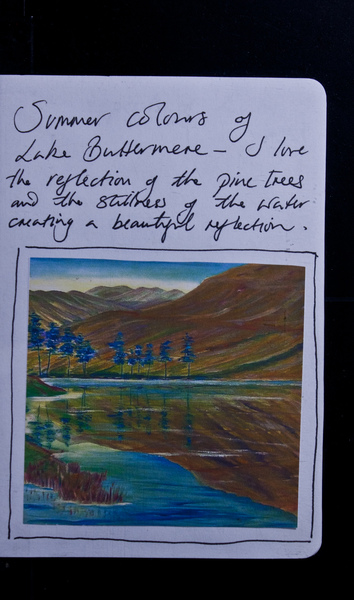 Summer colours of
Lake Buttermere – I love
the reflection of the pine trees
and the stillness of the water
creating a beautiful reflection.